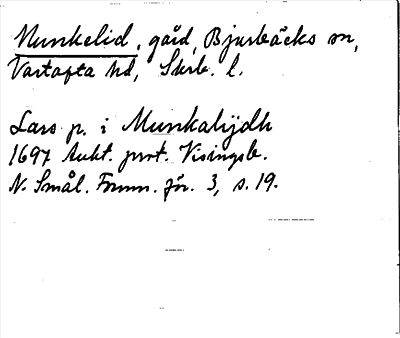 Munkelid, gård, Bjurbäcks sn,
Vartofta hd, Skrb. l.
Lars p. i Munkalijdh
1697 Aukt. prot. Visingsb.
N. Smål. Fornm. för. 3, s. 19.